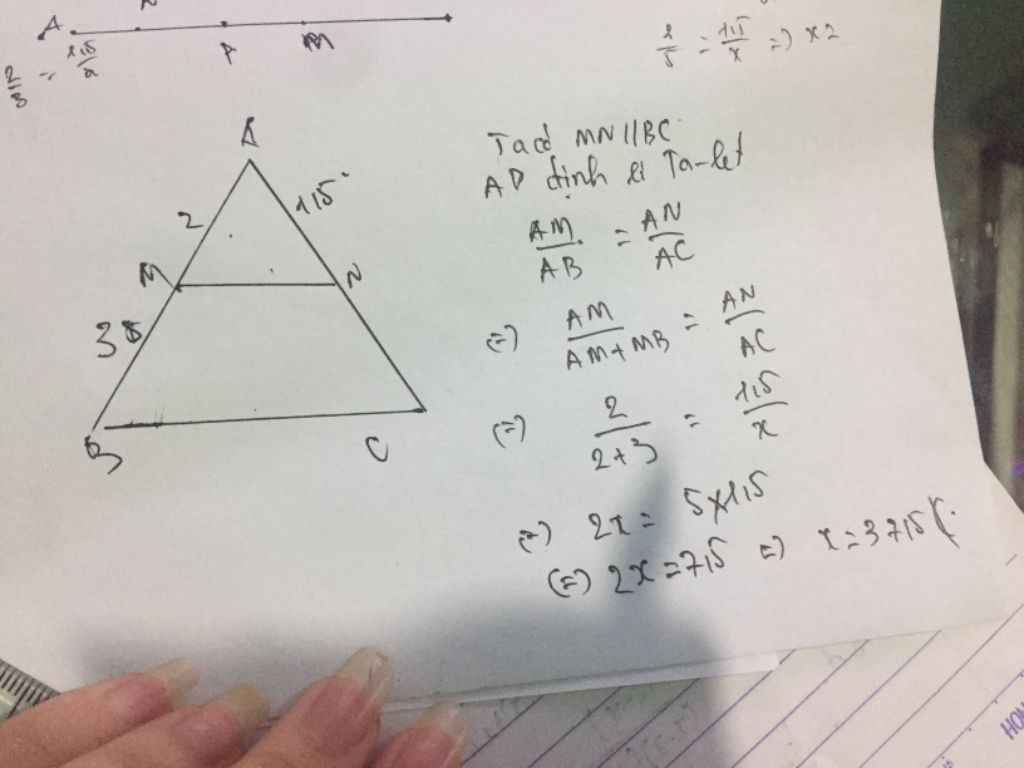 A
P
M
2/5 = 1,5/x
2/5 = 1,5/x => x =
A
2
1,5
M
N
3
B
C
Ta có MN//BC
AD định lí Ta-let
AM/AB = AN/AC
(=) AM/AM+MB = AN/AC
(=) 2/2+3 = 1,5/x
(=) 2x = 5x1,5
(=) 2x = 7,5 => x = 3,75 (
HON